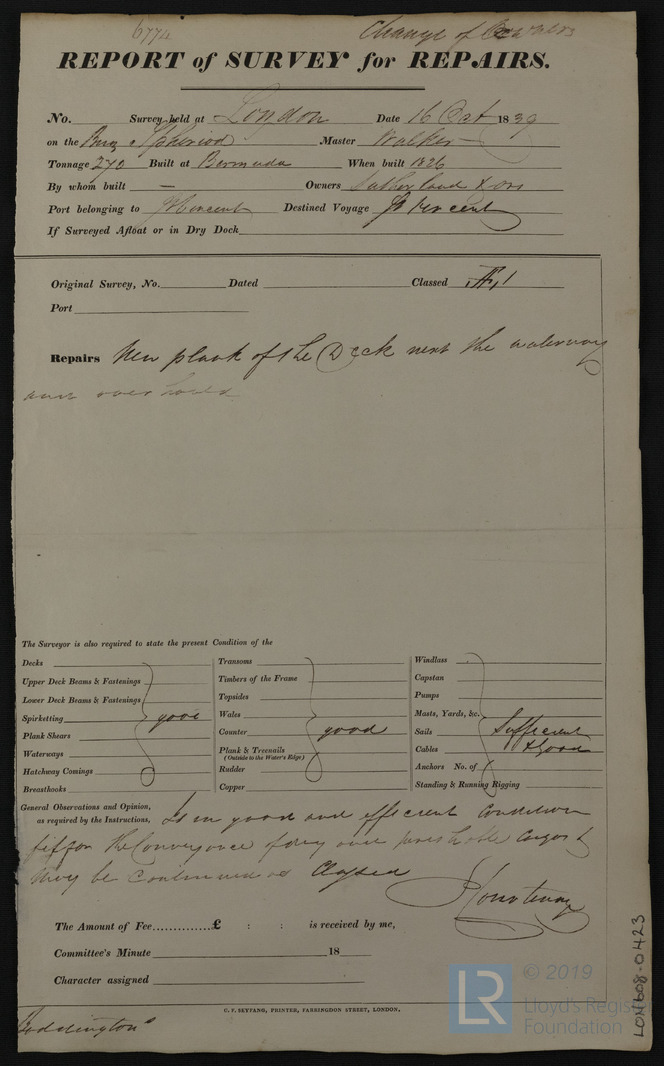 6774
Change of Owners
REPORT of SURVEY for REPAIRS.
No. Survey held at London Date 16 Oct 1839
on the Master Walker
Tonnage 270 Built at Bermuda When built 1826
By whom built — Owners
Port belonging to St Vincent Destined Voyage St Vincent
If Surveyed Afloat or in Dry Dock
Original Survey, No. Dated Classed Æ1
Port
Repairs New plank of the Deck next the waterway
and
The Surveyor is also required to state the present Condition of the
Decks
Upper Deck Beams & Fastenings
Lower Deck Beams & Fastenings
Spirketting good
Plank Shears
Waterways
Hatchway Comings
Breasthooks
Transoms
Timbers of the Frame
Topsides
Wales
Counter good
Plank & Treenails
(Outside to the Water's Edge)
Rudder
Copper
Windlass
Capstan
Pumps
Masts, Yards, &c.
Sails Sufficient
Cables & Good
Anchors No. of
Standing & Running Rigging
General Observations and Opinion,
as required by the Instructions, Is in good and efficient Condition
the Conveyance of dry and perishable Cargos &
May be Continued as Classed
The Amount of Fee..............£ : : is received by me,
Committee's Minute 18
Character assigned
C. F. SEYFANG, PRINTER, FARRINGDON STREET, LONDON.
LON608-0423
LR
© 2019
Lloyd's Register
Foundation